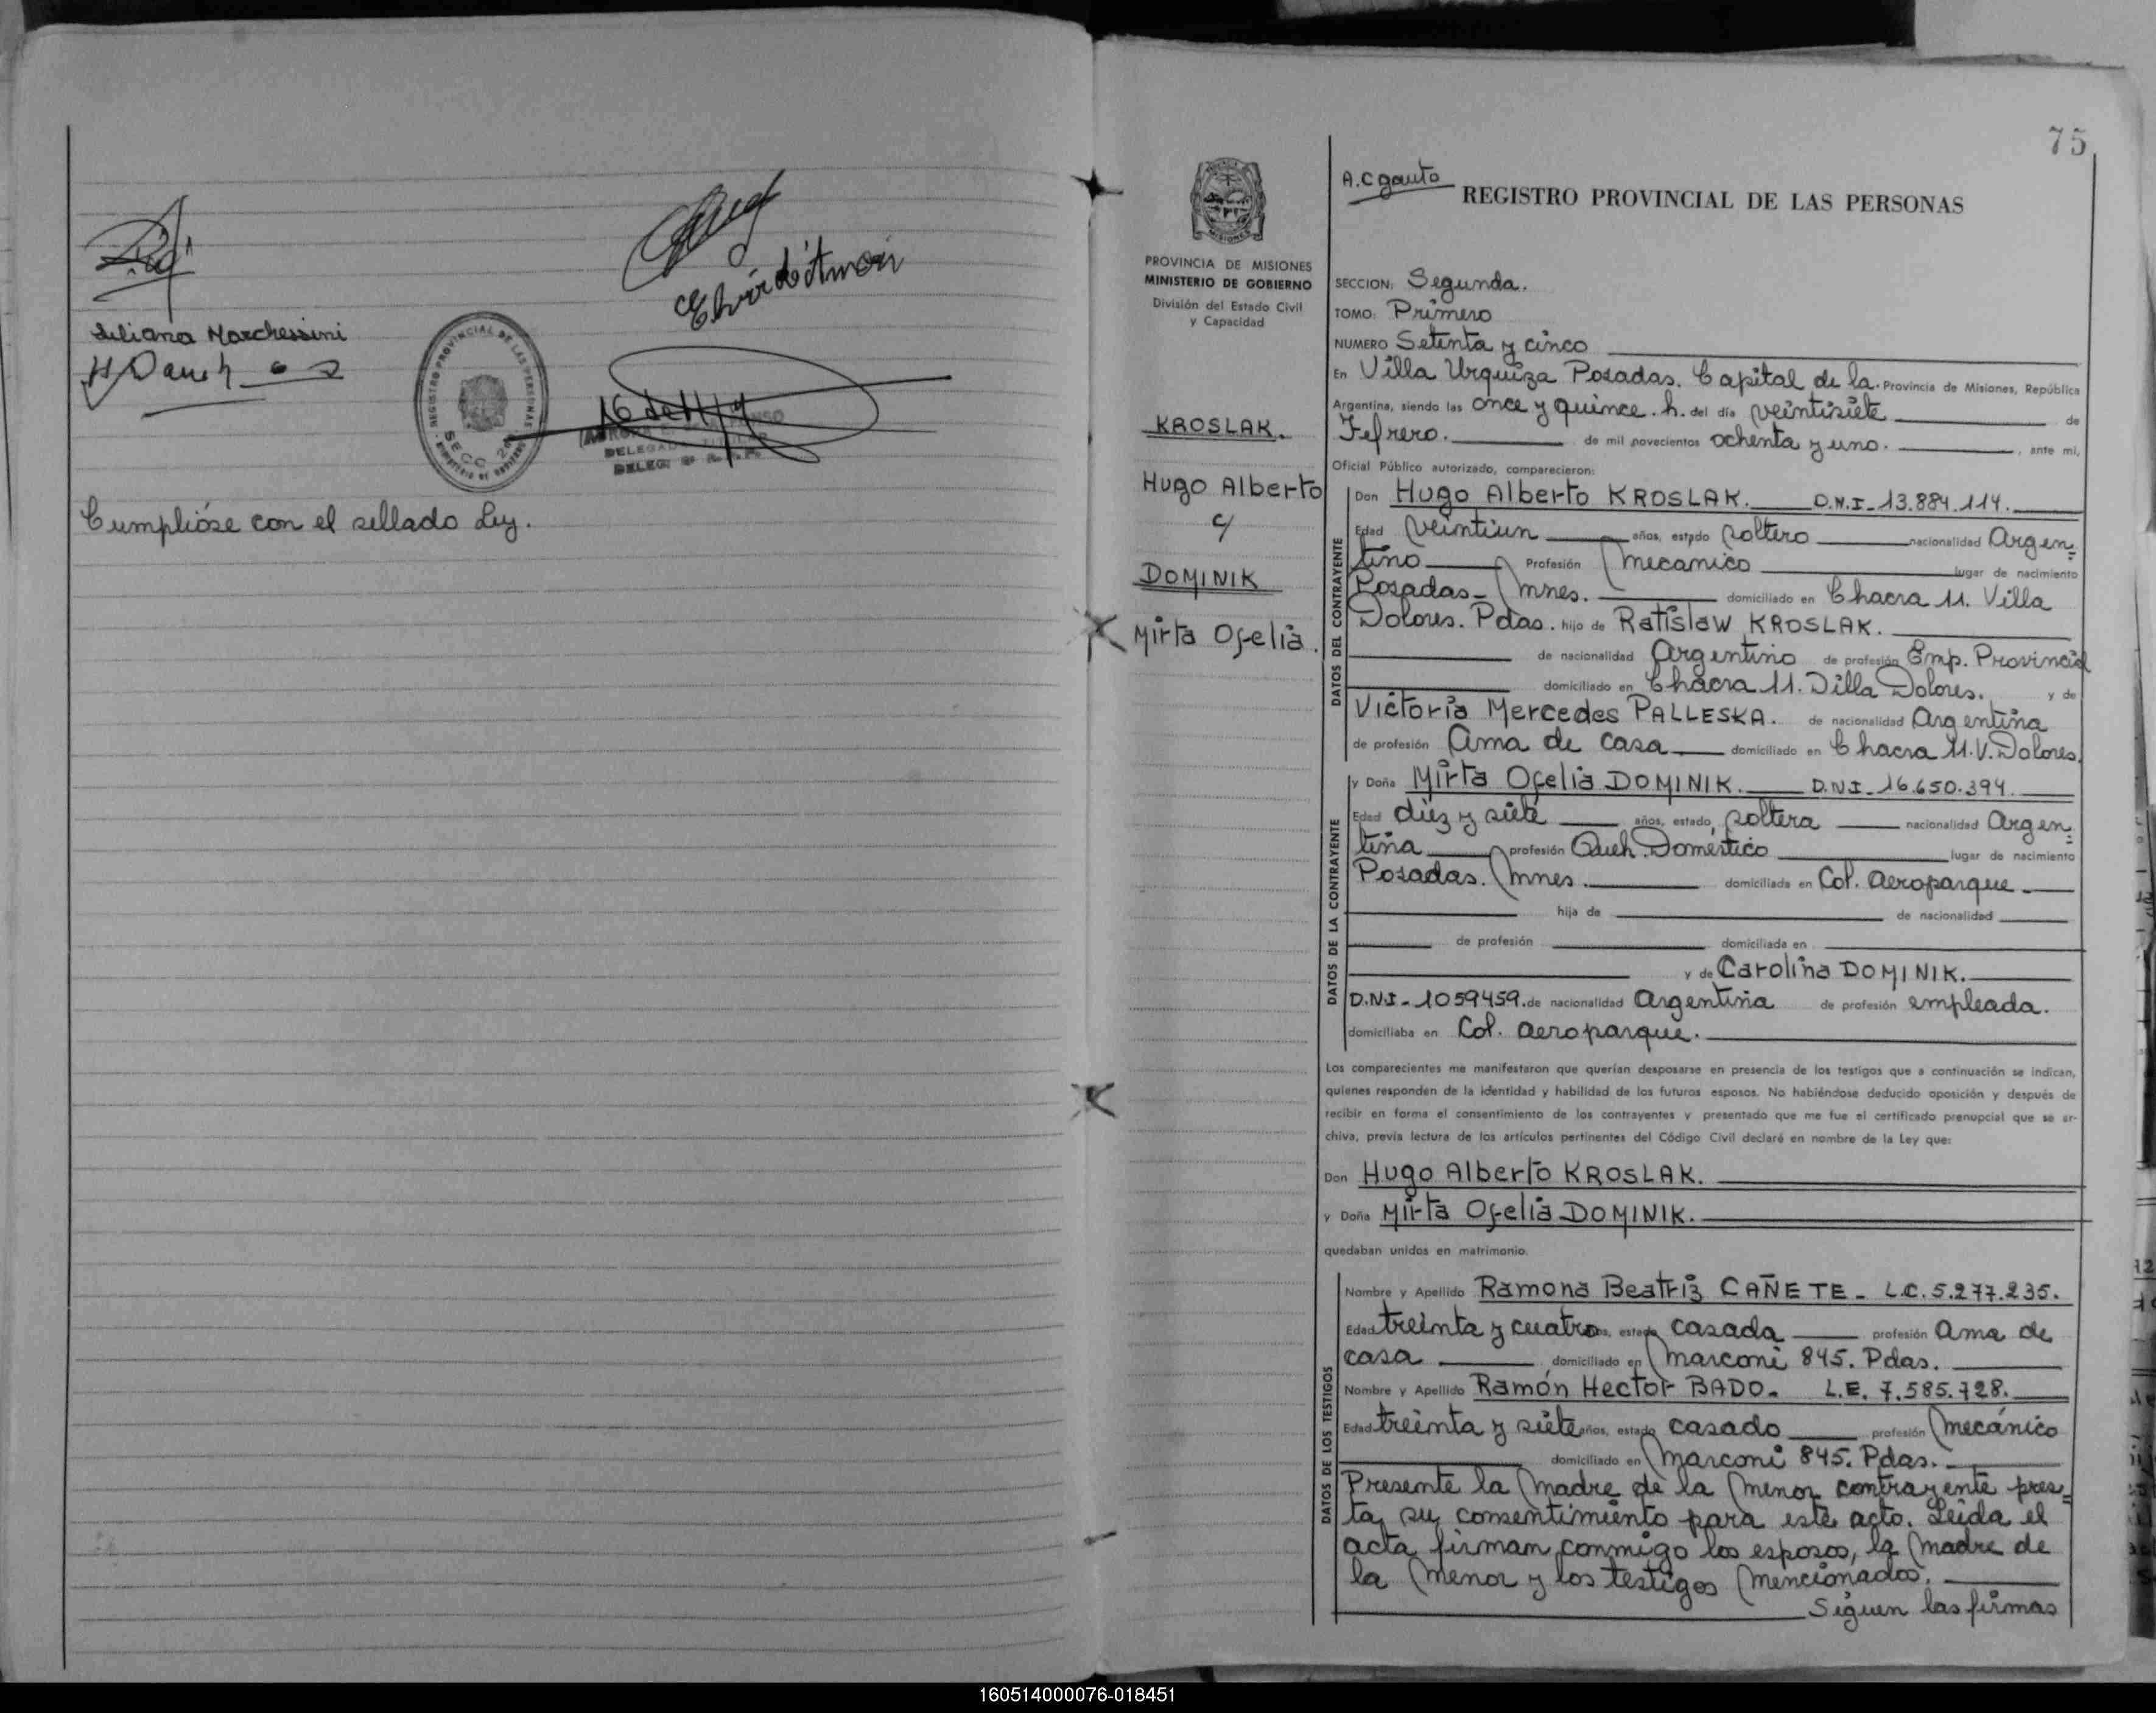 Liliana Marchessini
REGISTRO PROVINCIAL DE LAS PERSONAS
SECC. 2ª
DELEG.
Cumplióse con el sellado Ley.
75
A.C gauto
REGISTRO PROVINCIAL DE LAS PERSONAS
MISIONES
PROVINCIA DE MISIONES
MINISTERIO DE GOBIERNO
División del Estado Civil
y Capacidad
KROSLAK.
Hugo Alberto
c/
DOMINIK
Mirta Ofelia.
SECCION: Segunda.
TOMO: Primero
NUMERO Setenta y cinco
En Villa Urquiza Posadas. Capital de la Provincia de Misiones, República
Argentina, siendo las once y quince. h. del día veintisiete de
Febrero. de mil novecientos ochenta y uno. , ante mí,
Oficial Público autorizado, comparecieron:
DATOS DEL CONTRAYENTE
Don Hugo Alberto KROSLAK. D.N.I-13.884.114.
Edad veintiun años, estado soltero nacionalidad Argen=
tino Profesión mecanico lugar de nacimiento
Posadas- Mnes. domiciliado en Chacra 11. Villa
Dolores. Pdas. hijo de Ratislaw KROSLAK.
de nacionalidad Argentino de profesión Emp. Provincial
domiciliado en Chacra 11. Villa Dolores. y de
Victoria Mercedes PALLESKA. de nacionalidad Argentina
de profesión Ama de casa domiciliado en Chacra 11. V. Dolores.
DATOS DE LA CONTRAYENTE
y Doña Mirta Ofelia DOMINIK. D.N.I-16.650.394.
Edad diez y siete años, estado soltera nacionalidad Argen=
tina profesión Queh. Doméstico lugar de nacimiento
Posadas. Mnes. domiciliada en Col. Aeroparque.
hija de de nacionalidad
de profesión domiciliada en
y de Carolina DOMINIK.
D.N.I-1059459. de nacionalidad Argentina de profesión empleada.
domiciliaba en Col. Aeroparque.
Los comparecientes me manifestaron que querían desposarse en presencia de los testigos que a continuación se indican,
quienes responden de la identidad y habilidad de los futuros esposos. No habiéndose deducido oposición y después de
recibir en forma el consentimiento de los contrayentes y presentado que me fue el certificado prenupcial que se ar-
chiva, previa lectura de los artículos pertinentes del Código Civil declaré en nombre de la Ley que:
Don Hugo Alberto KROSLAK.
y Doña Mirta Ofelia DOMINIK.
quedaban unidos en matrimonio.
DATOS DE LOS TESTIGOS
Nombre y Apellido Ramona Beatriz CAÑETE - L.C. 5.277.235.
Edad treinta y cuatro años, estado casada profesión Ama de
casa domiciliado en Marconi 845. Pdas.
Nombre y Apellido Ramón Hector BADO. L.E. 7.585.728.
Edad treinta y siete años, estado casado profesión Mecánico
domiciliado en Marconi 845. Pdas.
Presente la Madre de la Menor contrayente pres=
ta su consentimiento para este acto. Leida el
acta firman conmigo los esposos, la Madre de
la Menor y los testigos Mencionados.
Siguen las firmas
160514000076-018451